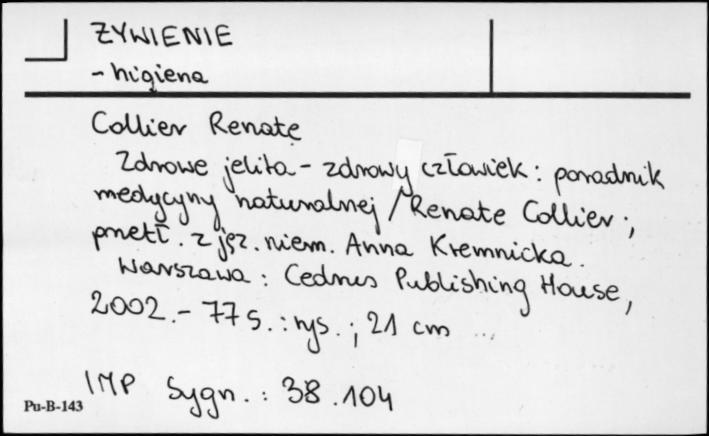 ŻYWIENIE
- higiena
Collier Renate
Zdrowe jelita - zdrowy człowiek : poradnik
medycyny naturalnej / Renate Collier ;
przekł. z jęz. niem. Anna Kremnicka.
Warszawa : Cedrus Publishing House,
2002. - 77 s. : rys. ; 21 cm
IMP Sygn. : 38.104
Pu-B-143